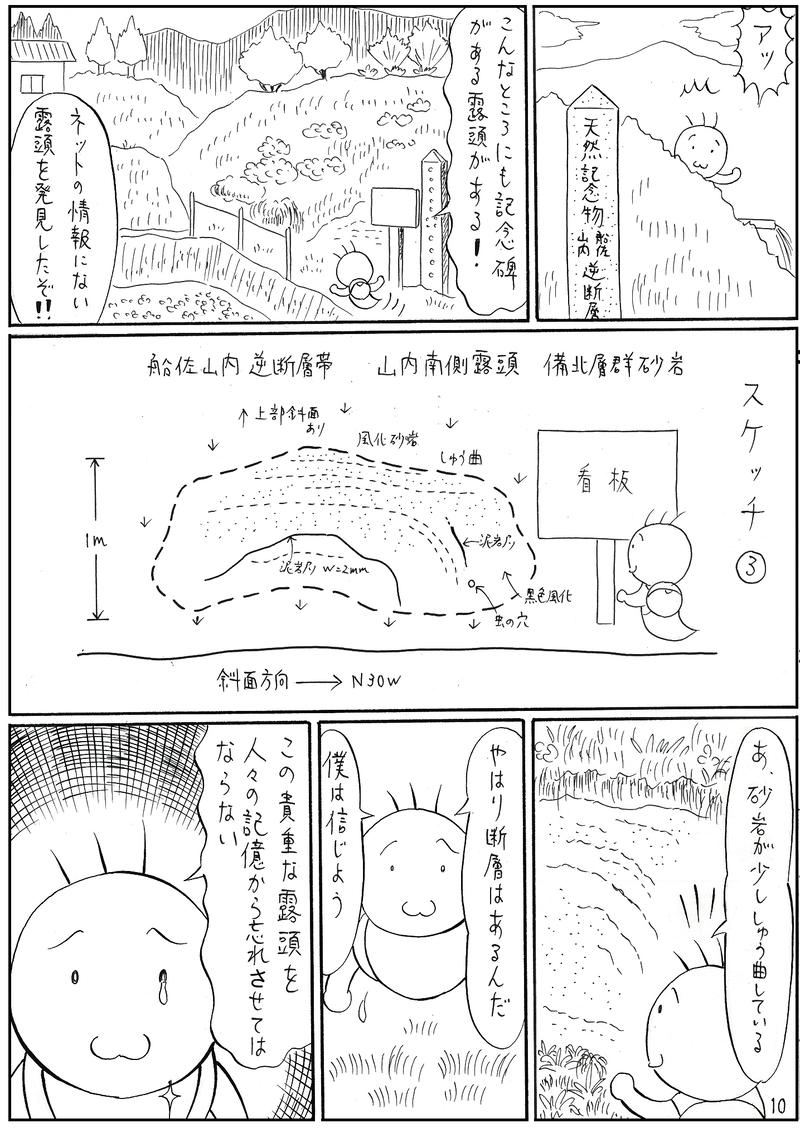 アッ
天然記念物
船佐
山内
逆断層
こんなところにも記念碑
がある露頭がある！
ネットの情報にない
露頭を発見したぞ!!
スケッチ③
船佐山内逆断層帯　山内南側露頭　備北層群砂岩
↑上部斜面
あり
風化砂岩
しゅう曲
看板
1m
←泥岩片
泥岩片 W=2mm
黒色風化
虫の穴
斜面方向 → N30W
あ、砂岩が少ししゅう曲している
やはり断層はあるんだ
僕は信じよう
この貴重な露頭を
人々の記憶から忘れさせては
ならない
10